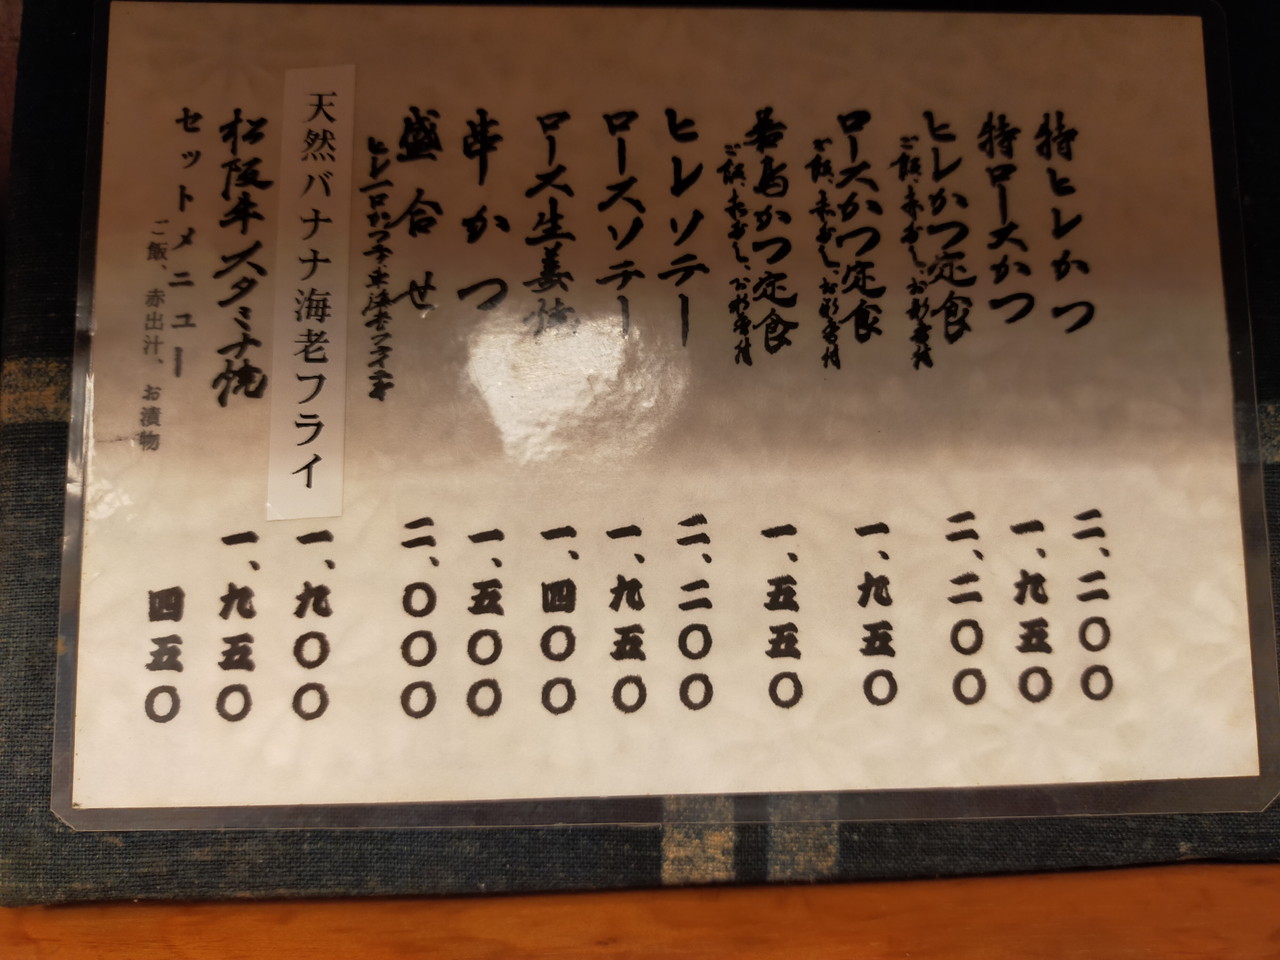 特ヒレかつ 二、二〇〇
特ロースかつ 一、九五〇
ヒレかつ定食 二、二〇〇
ご飯、赤だし、お新香付
ロースかつ定食 一、九五〇
ご飯、赤だし、お新香付
若鳥かつ定食 一、五五〇
ご飯、赤だし、お新香付
ヒレソテー 二、二〇〇
ロースソテー 一、九五〇
ロース生姜焼 一、四〇〇
串かつ 一、五〇〇
盛合せ 二、〇〇〇
ヒレ一口かつ
天然バナナ海老フライ 一、九〇〇
松阪牛スタミナ焼 一、九五〇
セットメニュー 四五〇
ご飯、赤出汁、お漬物